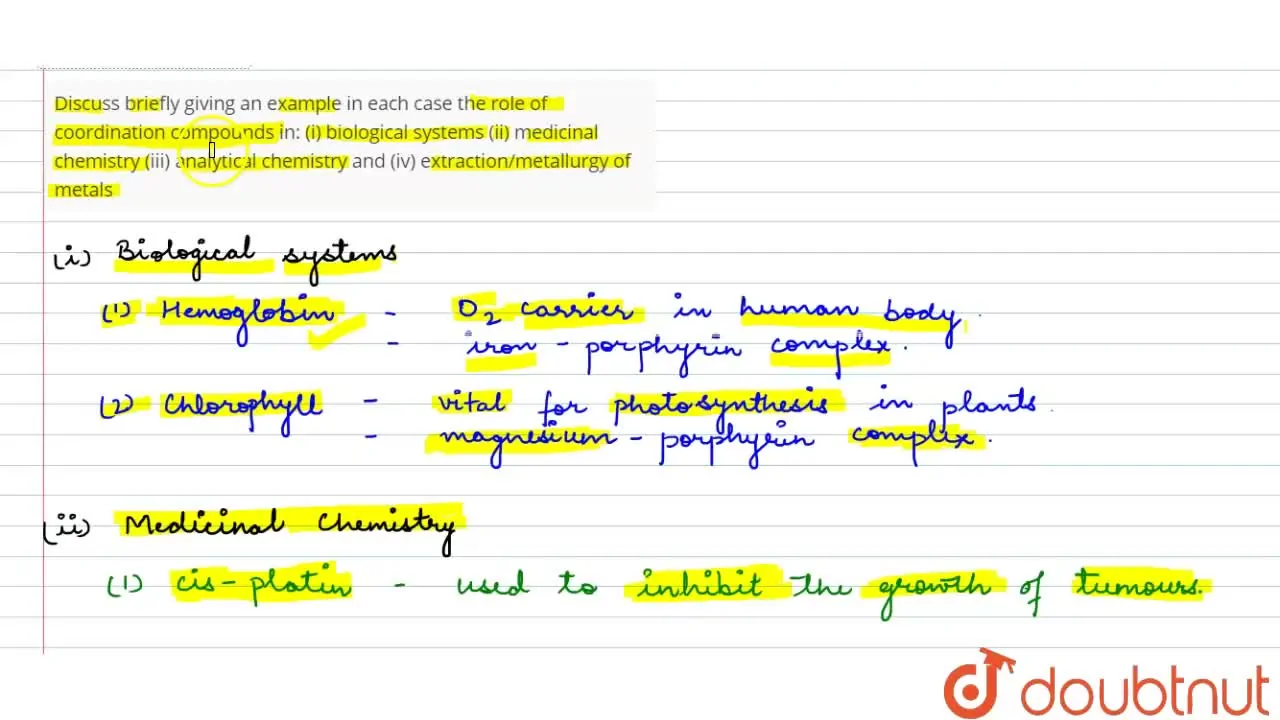 Discuss briefly giving an example in each case the role of
coordination compounds in: (i) biological systems (ii) medicinal
chemistry (iii) analytical chemistry and (iv) extraction/metallurgy of
metals
(i) Biological systems
(1) Hemoglobin - O2 carrier in human body.
- iron - porphyrin complex.
(2) Chlorophyll - vital for photosynthesis in plants.
- magnesium - porphyrin complex.
(ii) Medicinal Chemistry
(1) cis-platin - used to inhibit the growth of tumours.
doubtnut